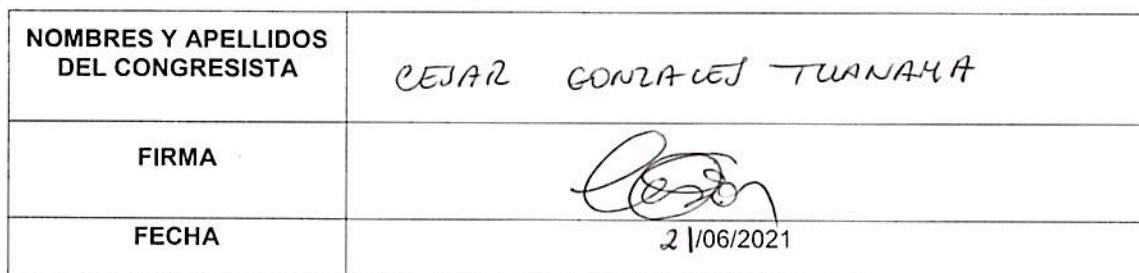 NOMBRES Y APELLIDOS
DEL CONGRESISTA
CESAR GONZALES TUANAMA
FIRMA
Cesar
FECHA
21/06/2021